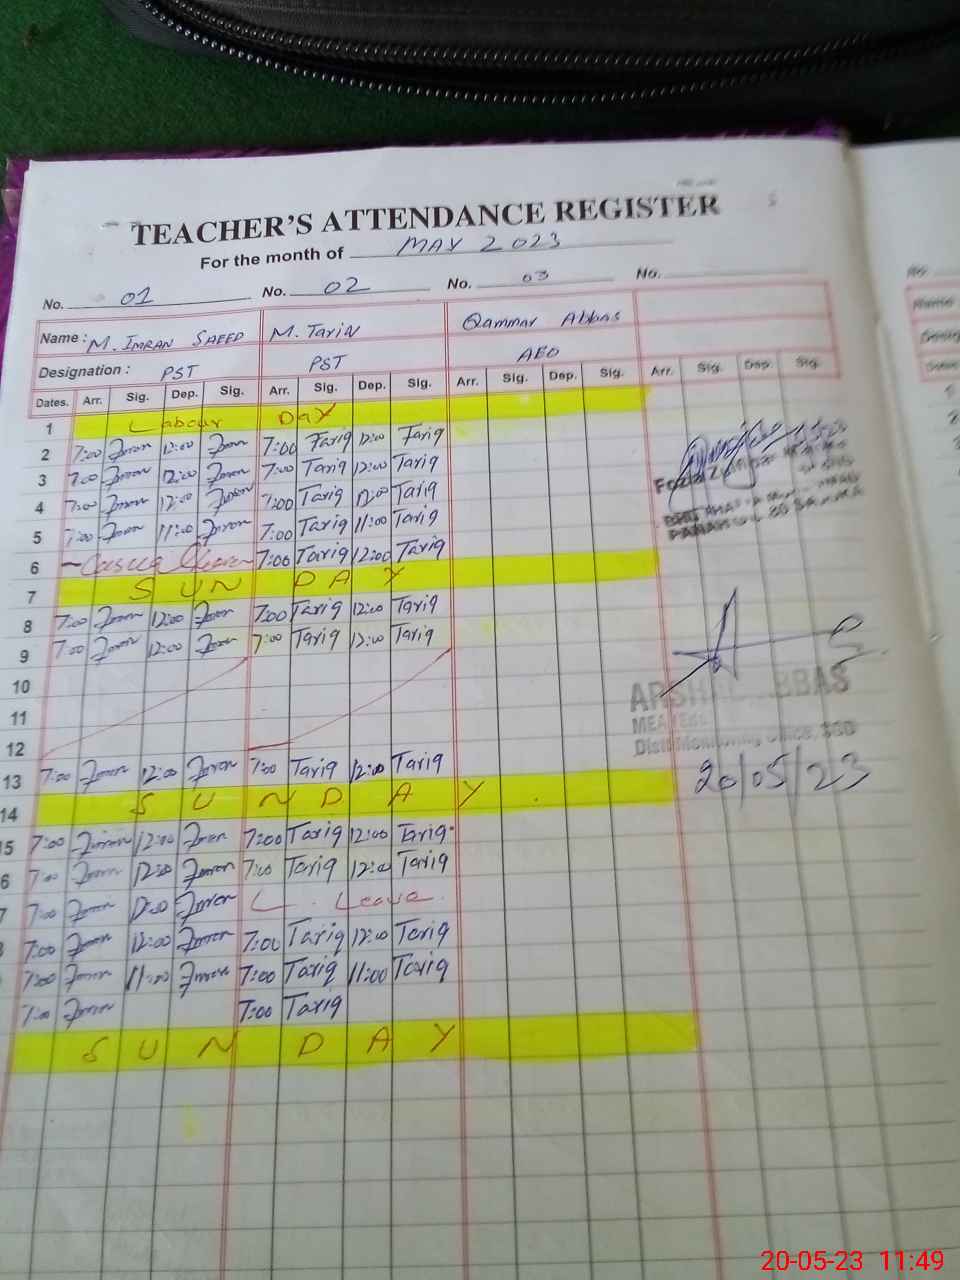 TEACHER'S ATTENDANCE REGISTER
For the month of MAY 2023
No. 01 No. 02 No. 03 No.
Name : M. IMRAN SAEED M. TariN Qammar Abbas
Designation : PST PST AEO
Dates. Arr. Sig. Dep. Sig. Arr. Sig. Dep. Sig. Arr. Sig. Dep. Sig. Arr. Sig. Dep. Sig.
1 Labour DAY
2 7:00 Imran 12:00 Imran 7:00 Tariq 12:00 Tariq
3 7:00 Imran 12:00 Imran 7:00 Tariq 12:00 Tariq
4 7:00 Imran 12:00 Imran 7:00 Tariq 12:00 Tariq
5 7:00 Imran 11:00 Imran 7:00 Tariq 11:00 Tariq
6 7:00 Tariq 12:00 Tariq
7 SUNDAY
8 7:00 Imran 12:00 Imran 7:00 Tariq 12:00 Tariq
9 7:00 Imran 12:00 Imran 7:00 Tariq 12:00 Tariq
10
11
12
13 7:00 Imran 12:00 Imran 7:00 Tariq 12:00 Tariq
14 SUNDAY
15 7:00 Imran 12:00 Imran 7:00 Tariq 12:00 Tariq
6 7:00 Imran 12:00 Imran 7:00 Tariq 12:00 Tariq
7 7:00 Imran 12:00 Imran L. Leave
7:00 Imran 12:00 Imran 7:00 Tariq 12:00 Tariq
7:00 Imran 11:00 Imran 7:00 Tariq 11:00 Tariq
7:00 Imran 7:00 Tariq
SUNDAY
Fozia
ARSHAD ABBAS
MEA
Distt Monitoring Office, SGD
20/05/23
20-05-23 11:49